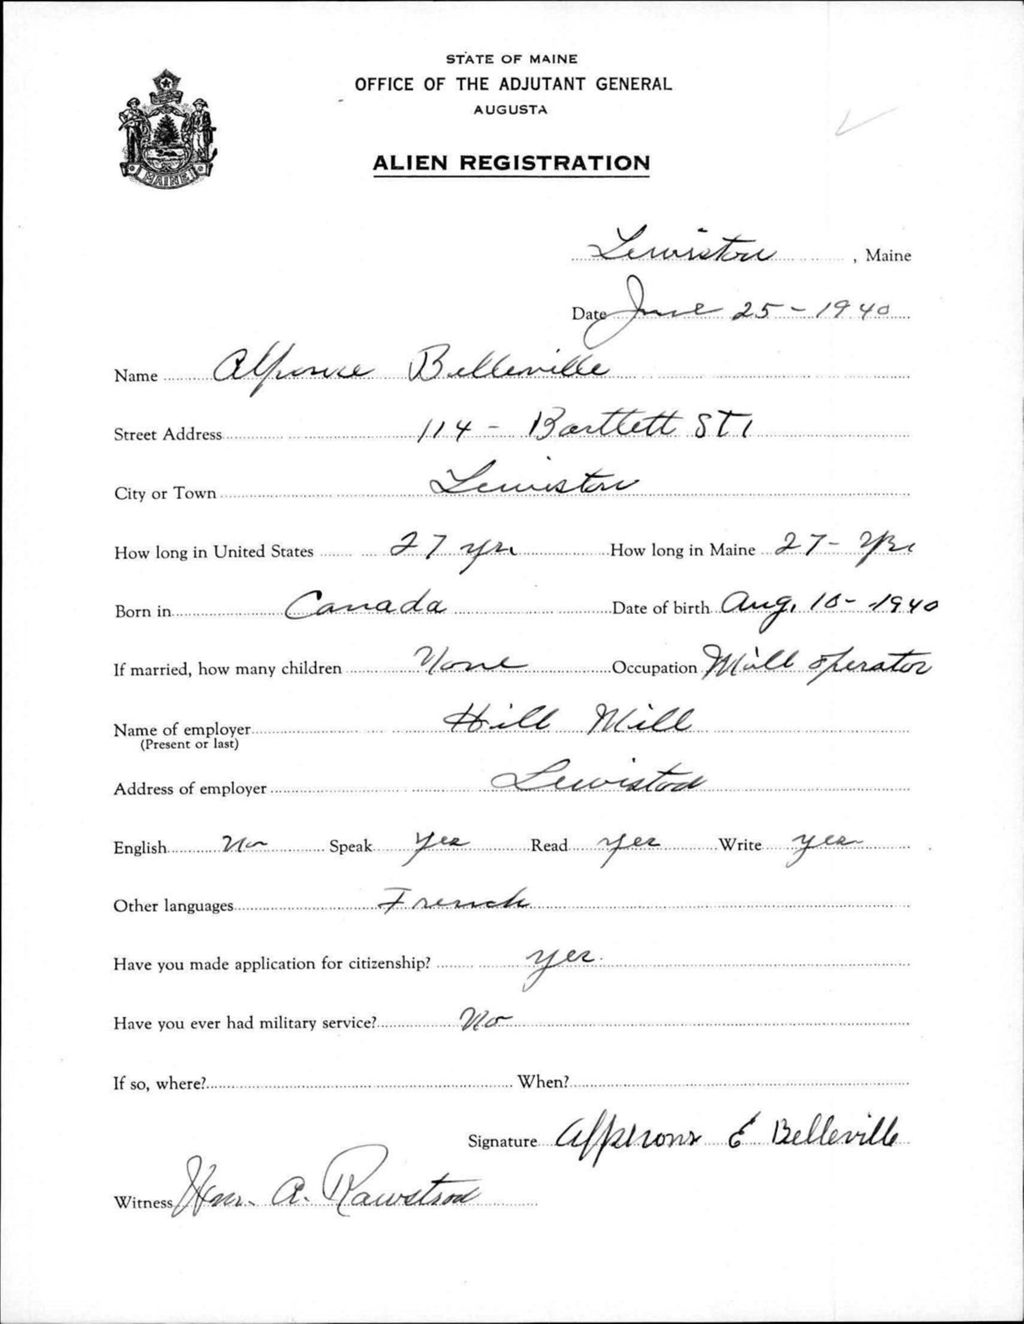 STATE OF MAINE
OFFICE OF THE ADJUTANT GENERAL
AUGUSTA
MAINE
ALIEN REGISTRATION
Lewiston, Maine
Date June 25-1940
Name Alfonse Belleville
Street Address 114 - Bartlett St,
City or Town Lewiston
How long in United States 27 yrs How long in Maine 27- Yrs
Born in Canada Date of birth Aug. 10-1940
If married, how many children None Occupation Mill operator
Name of employer Hill Mill
(Present or last)
Address of employer Lewiston
English No Speak Yes Read Yes Write yes
Other languages French
Have you made application for citizenship? yes.
Have you ever had military service? No
If so, where? When?
Signature E Belleville
Witness Wm. A. Rawstron